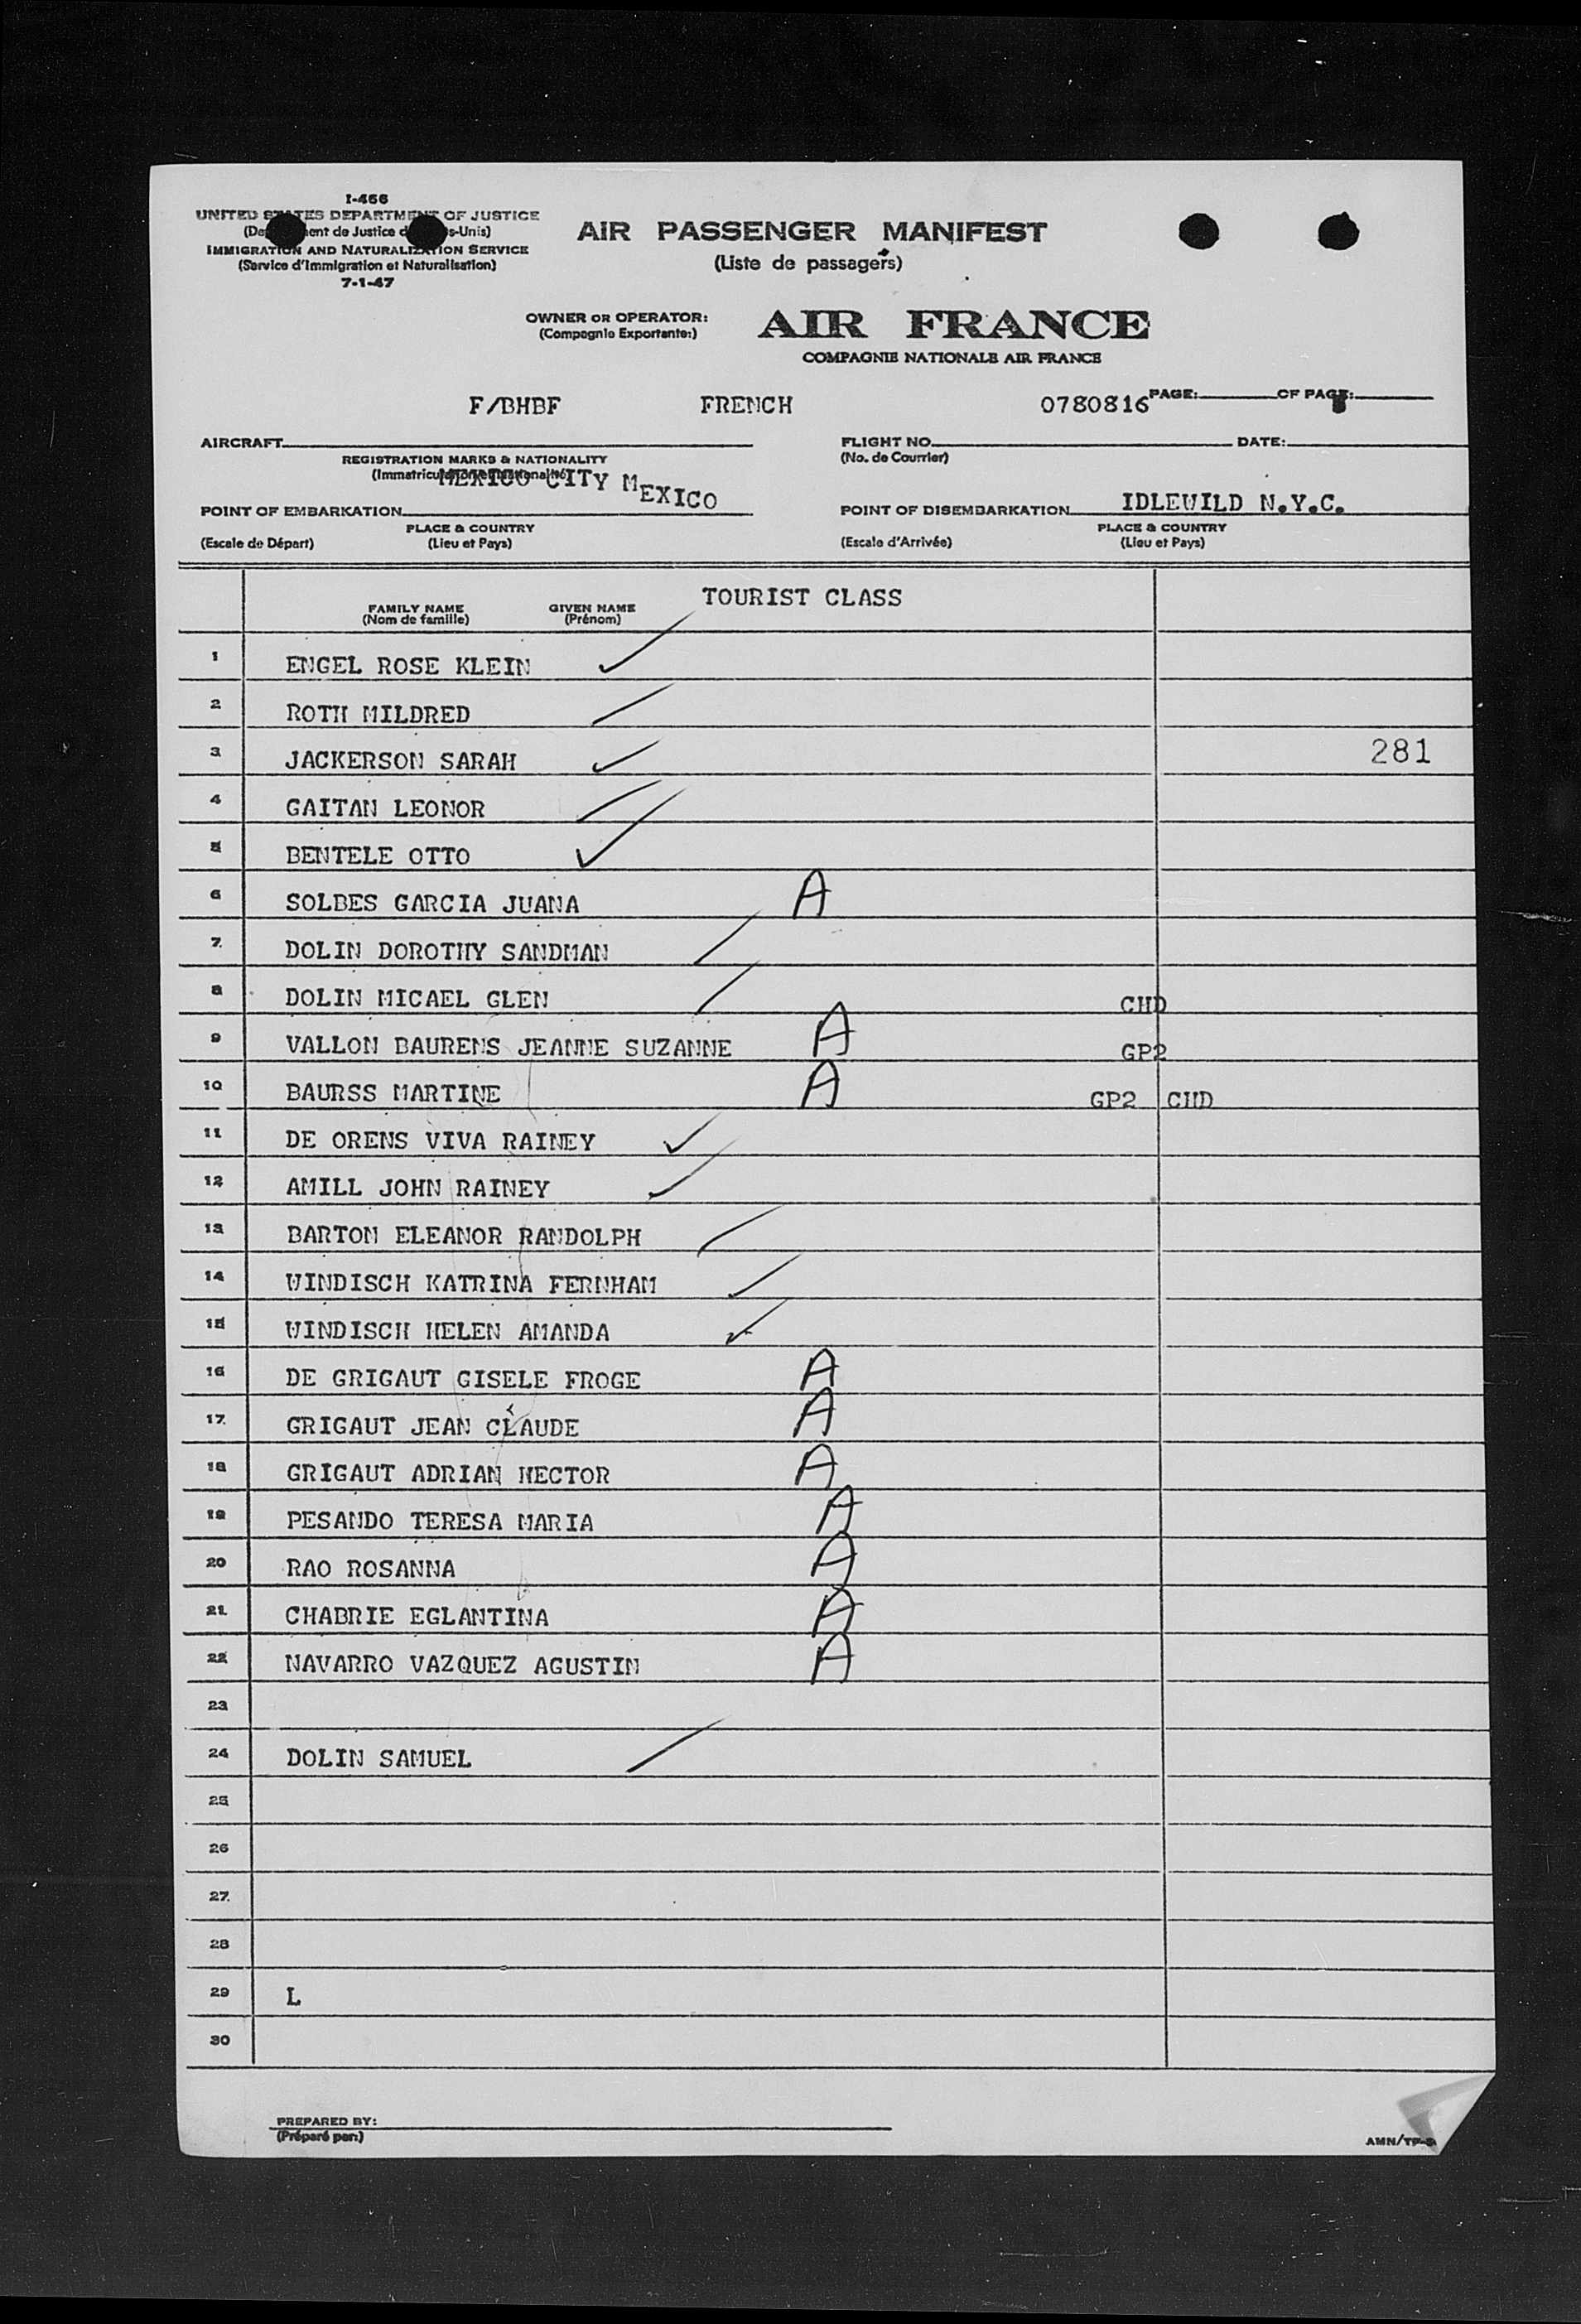 I-466
UNITED STATES DEPARTMENT OF JUSTICE
(De ent de Justice d s-Unis)
IMMIGRATION AND NATURALIZATION SERVICE
(Service d'Immigration et Naturalisation)
7-1-47
AIR PASSENGER MANIFEST
(Liste de passagers)
OWNER OR OPERATOR:
(Compagnie Exportante:)
AIR FRANCE
COMPAGNIE NATIONALE AIR FRANCE
F/BHBF FRENCH 0780816 PAGE: OF PAGE:
AIRCRAFT FLIGHT NO. DATE:
REGISTRATION MARKS & NATIONALITY (No. de Courrier)
(Immatriculation et Nationalité)
MEXICO CITY MEXICO
POINT OF EMBARKATION POINT OF DISEMBARKATION IDLEWILD N.Y.C.
PLACE & COUNTRY PLACE & COUNTRY
(Escale de Départ) (Lieu et Pays) (Escale d'Arrivée) (Lieu et Pays)
TOURIST CLASS
FAMILY NAME GIVEN NAME
(Nom de famille) (Prénom)
1 ENGEL ROSE KLEIN
2 ROTH MILDRED
3 JACKERSON SARAH 281
4 GAITAN LEONOR
5 BENTELE OTTO
6 SOLBES GARCIA JUANA A
7 DOLIN DOROTHY SANDMAN
8 DOLIN MICAEL GLEN CHD
9 VALLON BAURENS JEANNE SUZANNE A GP2
10 BAURSS MARTINE A GP2 CHD
11 DE ORENS VIVA RAINEY
12 AMILL JOHN RAINEY
13 BARTON ELEANOR RANDOLPH
14 WINDISCH KATRINA FERNHAM
15 WINDISCH HELEN AMANDA
16 DE GRIGAUT GISELE FROGE A
17 GRIGAUT JEAN CLAUDE A
18 GRIGAUT ADRIAN HECTOR A
19 PESANDO TERESA MARIA A
20 RAO ROSANNA A
21 CHABRIE EGLANTINA A
22 NAVARRO VAZQUEZ AGUSTIN A
23
24 DOLIN SAMUEL
25
26
27
28
29 L
30
PREPARED BY:
(Préparé par:)